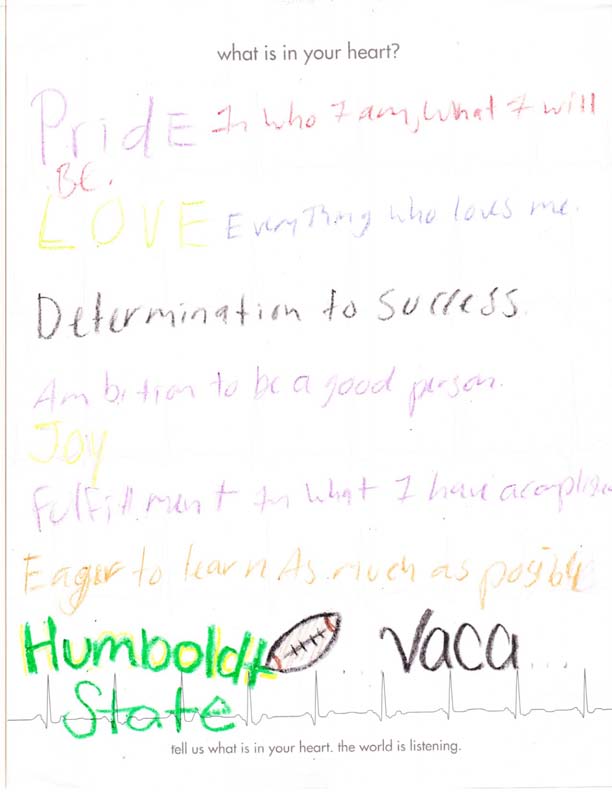 what is in your heart?
PridE In who I am, What I will
BE.
LOVE EveryThing who loves me.
Determination to success.
Ambition to be a good person.
Joy
FulFillment In what I have acomplishe
Eager to learn As much as posible
Humboldt Vaca...
State
tell us what is in your heart. the world is listening.